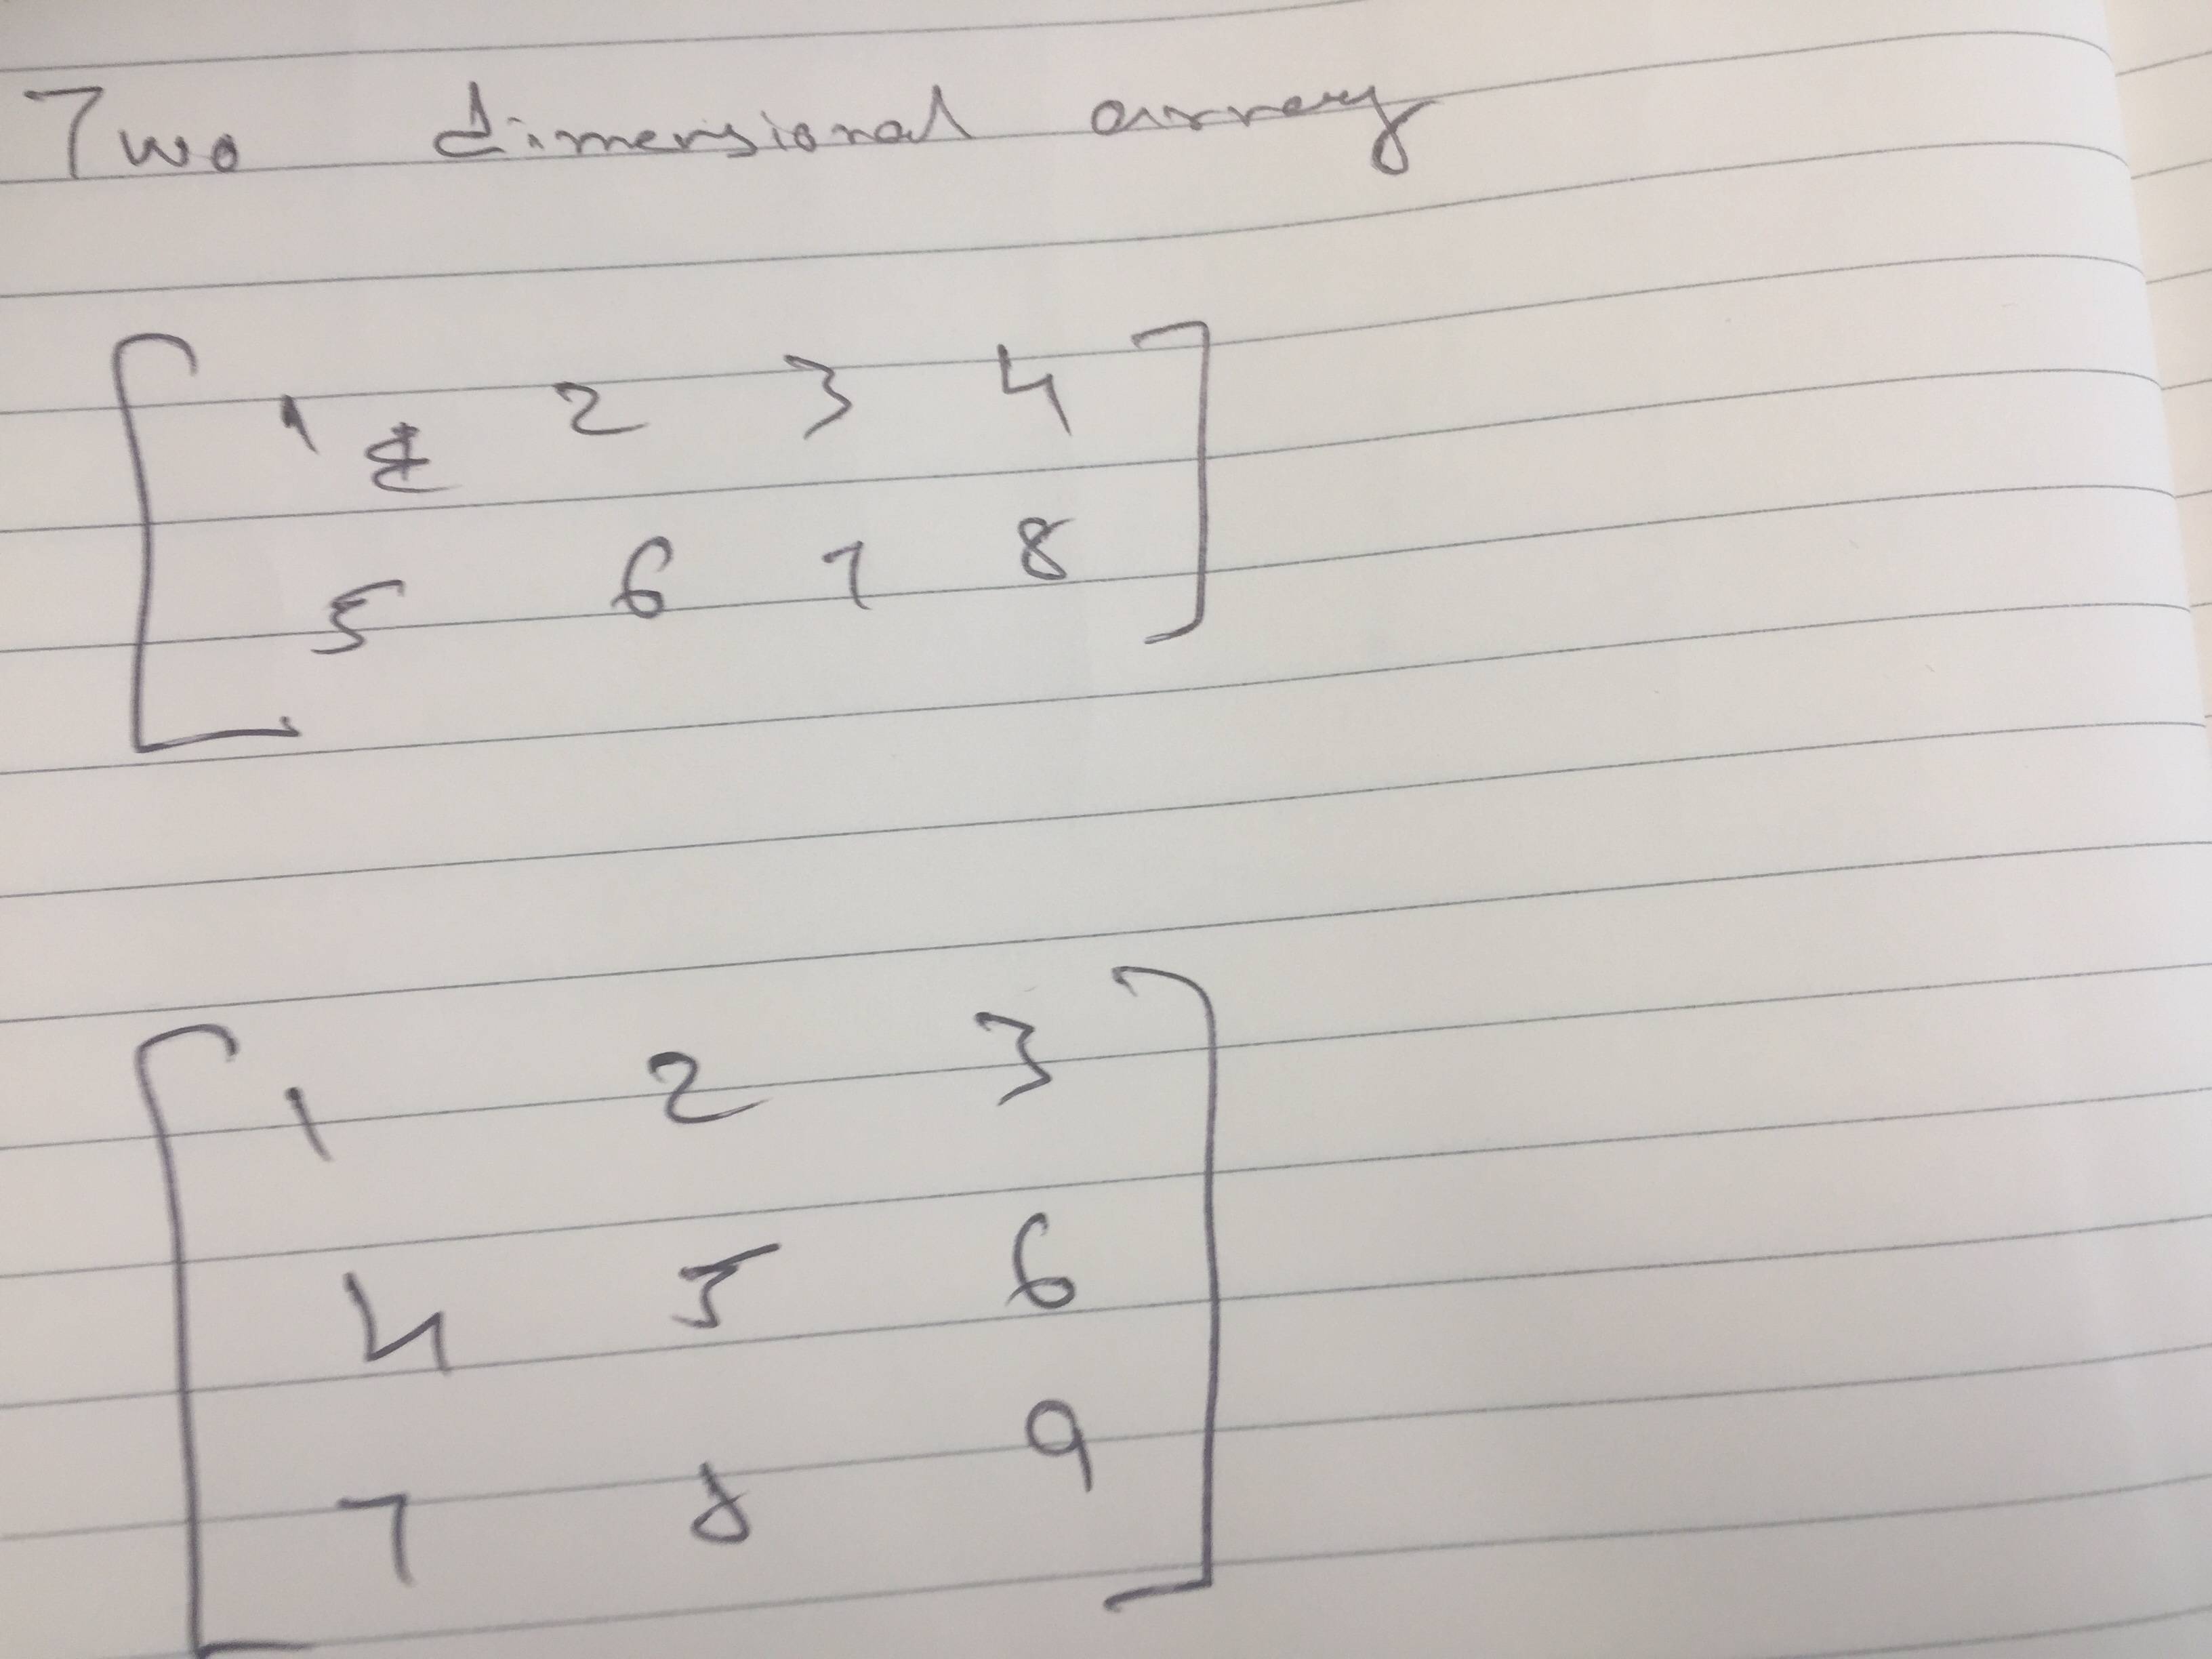 Two dimensional array
1 2 3 4
5 6 7 8
1 2 3
4 5 6
7 8 9